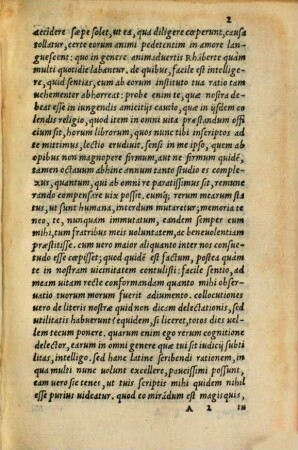 2
accidere sæpe solet, ut ea, qua diligere cœperunt, causa
tollatur, certe eorum animi pedetentim in amore lan-
guescent: quo in genere animaduertis Rhāberte quam
multi quotidie labantur. de quibus, facile est intellige-
re, quid sentias, cum ab eorum instituto tua ratio tam
uehementer abhorreat: probe enim te, quæ nostra de-
beat esse in iungendis amicitijs cautio, quæ in ijsdem co
lendis religio, quod item in omni uita præstandum offi
cium sit, horum librorum, quos nunc tibi inscriptos ad
te mittimus, lectio erudiuit. sensi in me ipso, quem ab
opibus non magnopere firmum, aut ne firmum quidē,
tamen octauum abhinc annum tanto studio es comple-
xus, quantum, qui ab omni re paratissimus sit, remune
rando compensare uix possit. eumq́; rerum mearum sta
tus, ut sunt humana, interdum mutaretur, memoria te
neo, te, nunquam immutatum, eandem semper cum
mihi, tum fratribus meis uoluntatem, ac beneuolentiam
præstitisse. cum uero maior aliquanto inter nos consue
tudo esse cœpisset; quod quidē est factum, postea quàm
te in nostram uicinitatem contulisti: facile sentio, ad
meam uitam recte conformandam quanto mihi obser
uatio tuorum morum fuerit adiumento. collocutiones
uero de literis nostræ quid non dicam delectationis, sed
utilitatis habuerunt? equidem, si liceret, totos dies uel-
lem tecum ponere. quarum enim ego rerum cognitione
delector, earum in omni genere quæ tui sit iudicij subtili
tas, intelligo. sed hanc latine scribendi rationem, in
qua multi nunc uolunt excellere, paucissimi possunt,
eam uero sic tenes, ut tuis scriptis mihi quidem nihil
esse purius uideatur. quod eo mirādum est magis quis,
A 2 in